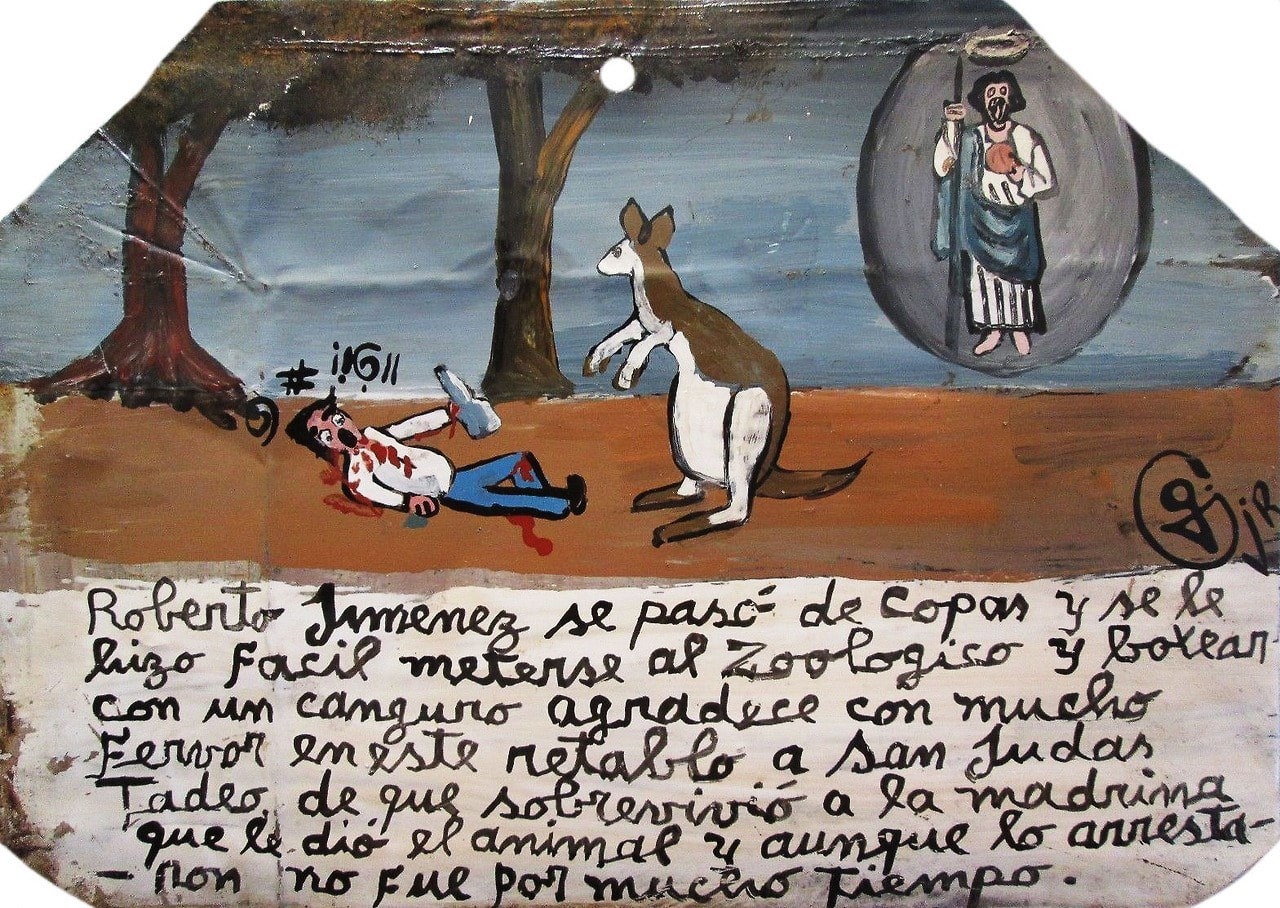 # ¡!6!!
Roberto Jimenez se pasó de copas y se le
hizo facil meterse al Zoologico y boxear
con un canguro agradece con mucho
Fervor en este retablo a San Judas
Tadeo, de que sobrevivió a la madrina
que le dió el animal y aunque lo arresta-
- ron no fue por mucho tiempo.
g. jR